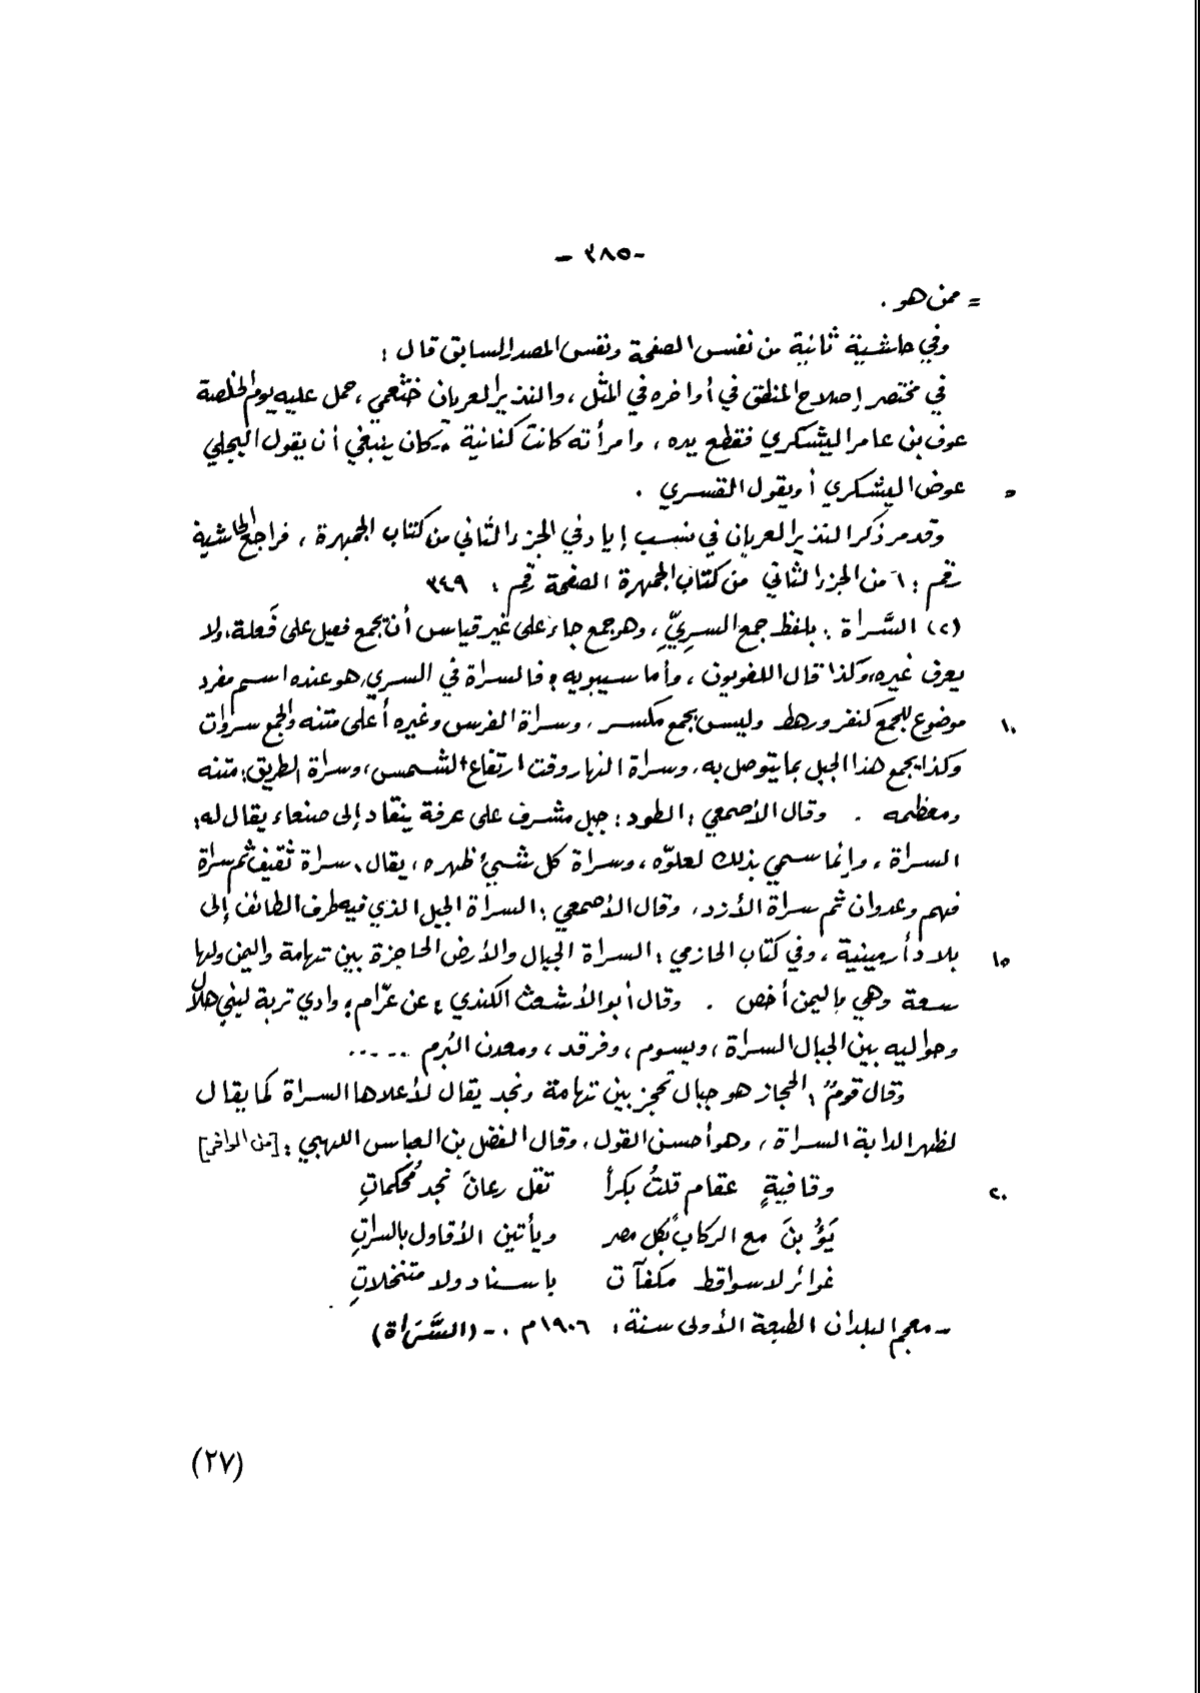 -٣٨٥-
= ممن هو .
وفي حاشية ثانية من نفس الصفحة ونفس المصدر السابق قال :
في مختصر إصلاح المنطق في أواخره في المثل ، والنذير العريان خثعمي ، حمل عليه يوم الخلصة
عوف بن عامر اليشكري فقطع يده ، وامرأته كانت كنانية - كان ينبغي أن يقول البجلي
٥ عوض اليشكري أو يقول القسري .
وقد مر ذكر النذير العريان في نسب إياد في الجزء الثاني من كتاب الجمهرة ، فراجع الحاشية
رقم : ١ من الجزء الثاني من كتاب الجمهرة الصفحة رقم : ٣٤٩
(٢) السَّراة : بلفظ جمع السريِّ ، وهو جمع جاء على غير قياس أن يجمع فعيل على فَعلة، ولا
يعرف غيره، وكذا قال اللغويون ، وأما سيبويه ؛ فالسراة في السري، هو عنده اسم مفرد
١٠ موضوع للجمع كنفر ورهط وليس بجمع مكسر ، وسراة الفرس وغيره أعلى متنه والجمع سروات
وكذا يجمع هذا الجبل بما يتوصل به، وسراة النهار وقت ارتفاع الشمس، وسراة الطريق: متنه
ومعظمه . وقال الأصمعي : الطود : جبل مشرف على عرفة ينقاد إلى صنعاء يقال له:
السراة ، وإنما سمي بذلك لعلوّه ، وسراة كل شيئ ظهره ، يقال، سراة ثقيف ثم سراة
فهم وعدوان ثم سراة الأزد، وقال الأصمعي : السراة الجبل الذي فيه طرف الطائف إلى
١٥ بلاد أرمينية ، وفي كتاب الحازمي : السراة الجبال والأرض الحاجزة بين تهامة واليمن ولها
سعة وهي باليمن أخص . وقال أبو الأشعث الكندي ؛ عن عرّام ؛ وادي تربة لبني هلال
وحواليه بين الجبال السراة ، ويسوم ، وفرقد ، ومعدن البُرم .....
وقال قومٌ : الحجاز هو جبال تحجز بين تهامة ونجد يقال لأعلاها السراة كما يقال
لظهر الدابة السراة ، وهو أحسن القول، وقال الفضل بن العباس اللهبي : [من الوافر]
٢٠ وقافيةٍ عقام قلتُ بكراً تقل رعانَ نجدٍ مُحكماتِ
يَؤُبنَ مع الركاب بكل مصر ويأتين الأقاول بالسراتِ
غوائر لا سواقط مكفآت باسناد ولا متنخلاتِ
- معجم البلدان الطبعة الأولى سنة : ١٩٠٦م . - (السَّرَاة)
(٢٧)